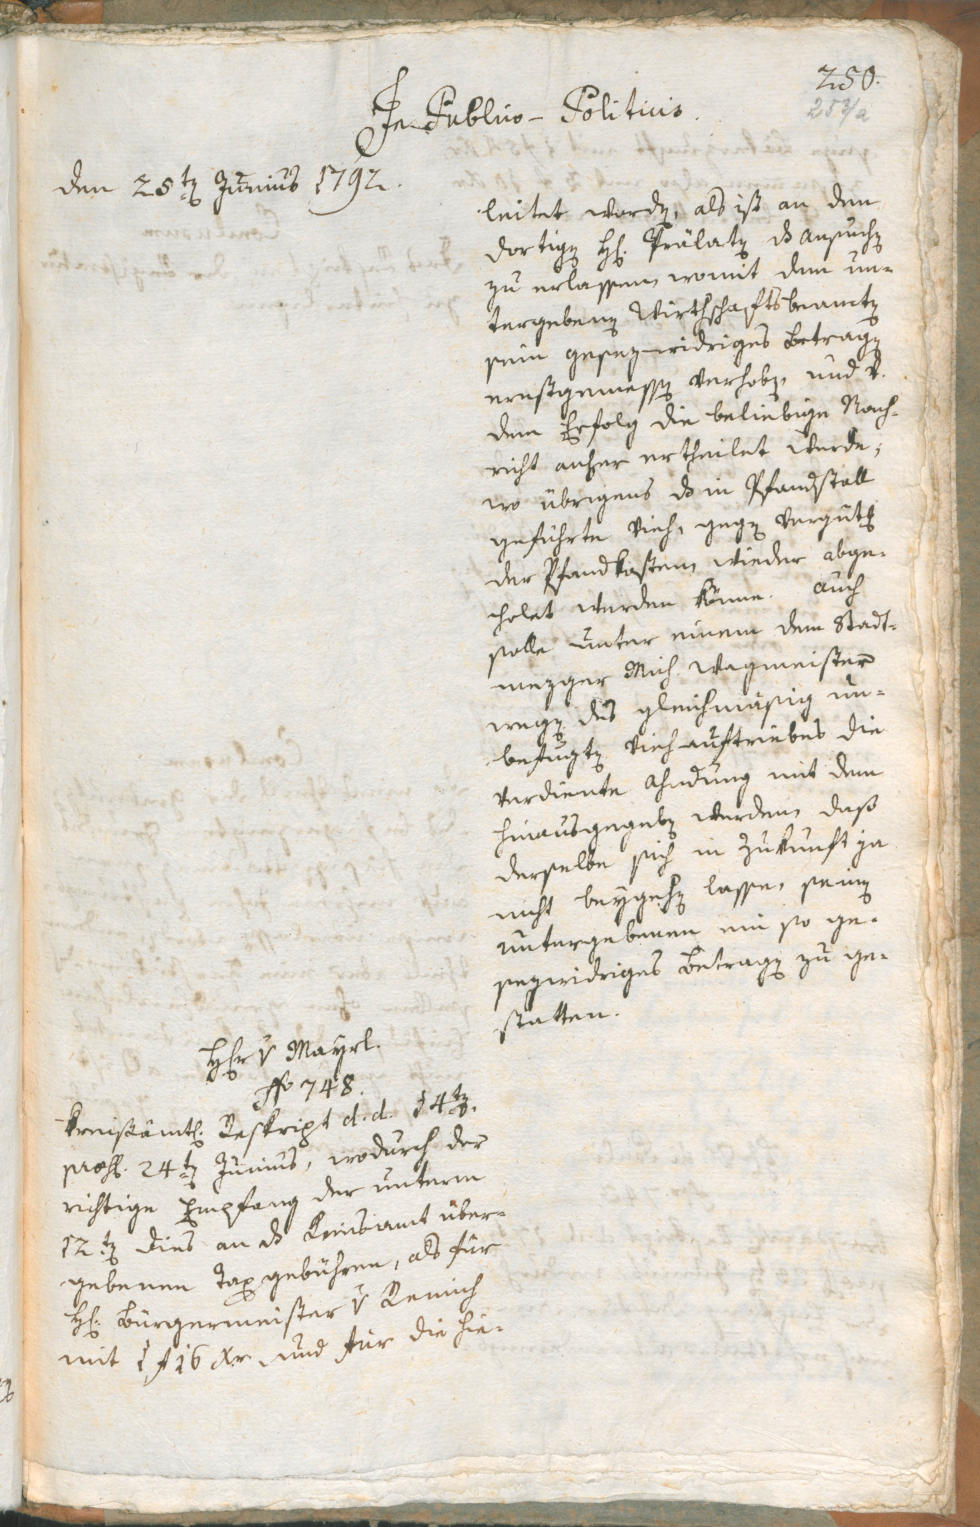 250.
253/a
In Publico-Politicis.
den 25tn Junius 1792.
leitet wordn, als ist an den
dortign H: Prälatn ds Ansuchn
zu erlassen, womit dem un-
tergebenn Wirthschaftsbeamtn
sein gesezwidriges Betragn
ernstgemessn verhobn, und v.
dem Erfolg die beliebige Nach-
richt anher ertheilet werde,
wo übrigens ds in Pfandstall
geführte Vieh, gegn Vergütg
der Pfandkosten wieder abge-
holet werden könne. Auch
solle unter einem dem Stadt-
mezger Mich. Wagmeister
wegn des gleichmäsig un-
befugtn Viehauftriebes die
verdiente Ahndung mit dem
hinausgegebn werden, daß
derselbe sich in Zukunft ja
nicht beygehn lasse, seinn
untergebenen ein so ge-
sezwidriges Betragn zu ge-
statten.
Hr v Mayrl.
No 748.
Kreißämtl. Reskript d. d. 14tn,
praes. 24tn Junius, wodurch der
richtige Empfang der unterm
12tn dies an ds Kreisamt über-
gebenen Taxgebühren, als für
H: Bürgermeister v Remich
mit 1 f 16 Xr und für die hie-